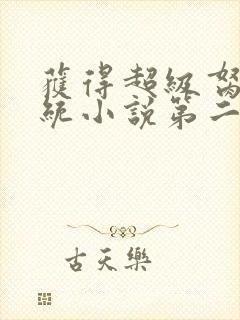 獲得超級
統小說第二
古天樂